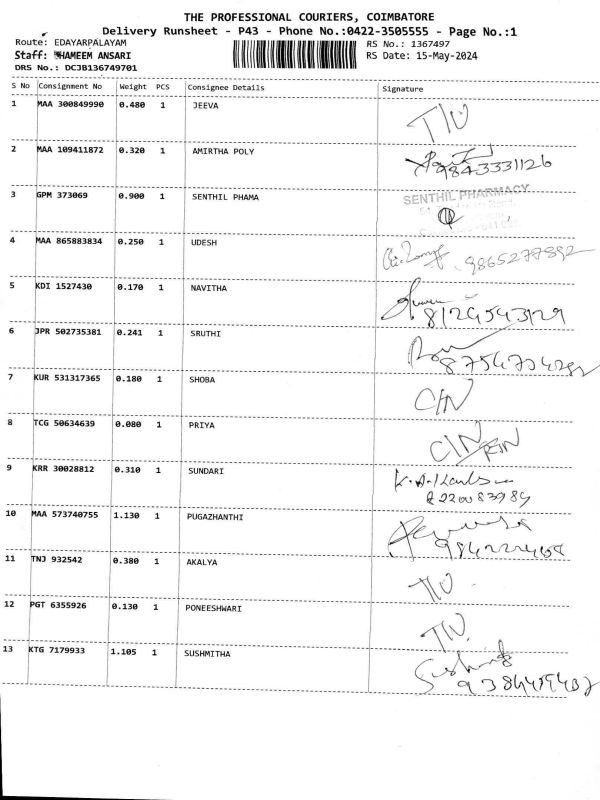 THE PROFESSIONAL COURIERS, COIMBATORE
Delivery Runsheet - P43 - Phone No.:0422-3505555 - Page No.:1
Route: EDAYARPALAYAM
RS No.: 1367497
Staff: SHAMEEM ANSARI
RS Date: 15-May-2024
DRS No.: DCJB136749701
S No Consignment No Weight PCS Consignee Details Signature
1 MAA 300849990 0.480 1 JEEVA
2 MAA 109411872 0.320 1 AMIRTHA POLY 9843331126
3 GPM 373069 0.900 1 SENTHIL PHAMA SENTHIL PHARMACY
4 MAA 865883834 0.250 1 UDESH 9865277892
5 KDI 1527430 0.170 1 NAVITHA 8129543129
6 JPR 502735381 0.241 1 SRUTHI
7 KUR 531317365 0.180 1 SHOBA CIN
8 TCG 50634639 0.080 1 PRIYA CIN
9 KRR 30028812 0.310 1 SUNDARI
10 MAA 573740755 1.130 1 PUGAZHANTHI
11 TNJ 932542 0.380 1 AKALYA
12 PGT 6355926 0.130 1 PONEESHWARI
13 KTG 7179933 1.105 1 SUSHMITHA